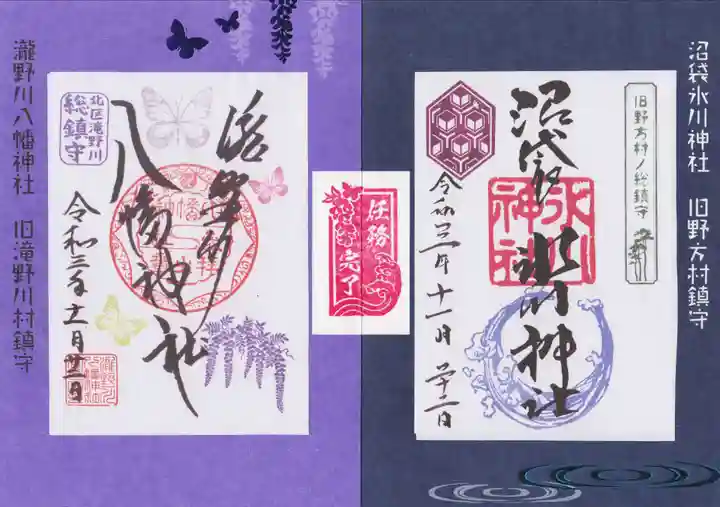 沼袋氷川神社 旧野方村鎮守
旧野方村ノ総鎮守
沼袋 氷川神社
氷川神社
令和三年十一月廿二日
任務
完了
北区滝野川
総鎮守
滝野川
八幡神社
令和三年十一月廿二日
瀧野川八幡神社 旧滝野川村鎮守